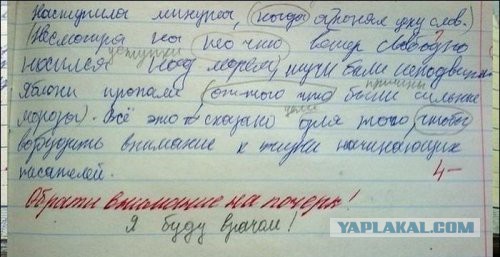 Наступила минута, (когда я понял цену слов.)
(Несмотря на то что ветер свободно
уступки
носился над морем) тучи были неподвижны
причины
Яблоки пропали (оттого что были сильные
цели
морозы). Всё это сказано для того, (чтобы
возбудить внимание к жизни начинающих
писателей.
4-
Обрати внимание на почерк!
Я буду врачом!
YAPLAKAL.COM